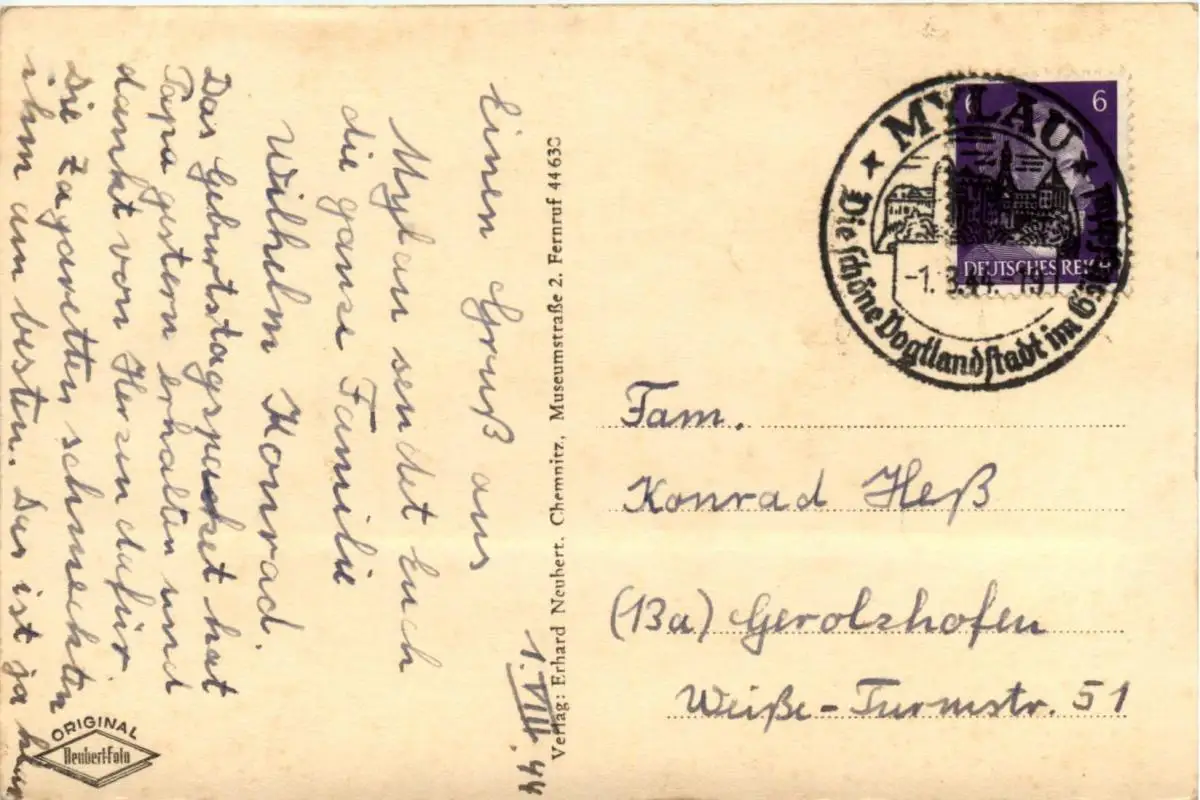 1. VIII. 44
Einen Gruß aus
Mylau sendet Euch
die ganze Familie
Wilhelm Konrad.
Das Geburtstagspacket hat
Papa gestern erhalten und
dankt von Herzen dafür.
Die Zagaretten schmeckten
ihm am besten. Das ist ja klar
ORIGINAL
Neubert-Foto
Verlag: Erhard Neubert, Chemnitz, Museumstraße 2. Fernruf 44 630
MYLAU
Die schöne Vogtlandstadt im
-1. 8.44. 19
6
6
DEUTSCHES REICH
Fam.
Konrad Heß
(13a) Gerolzhofen
Weiße-Turmstr. 51